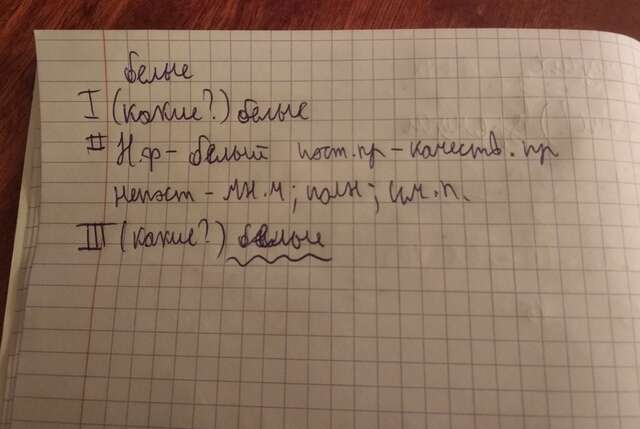 белые
I (какие?) белые
II Н.ф - белый пост.пр - качеств. пр
непост - мн.ч; полн; им.п.
III (какие?) белые